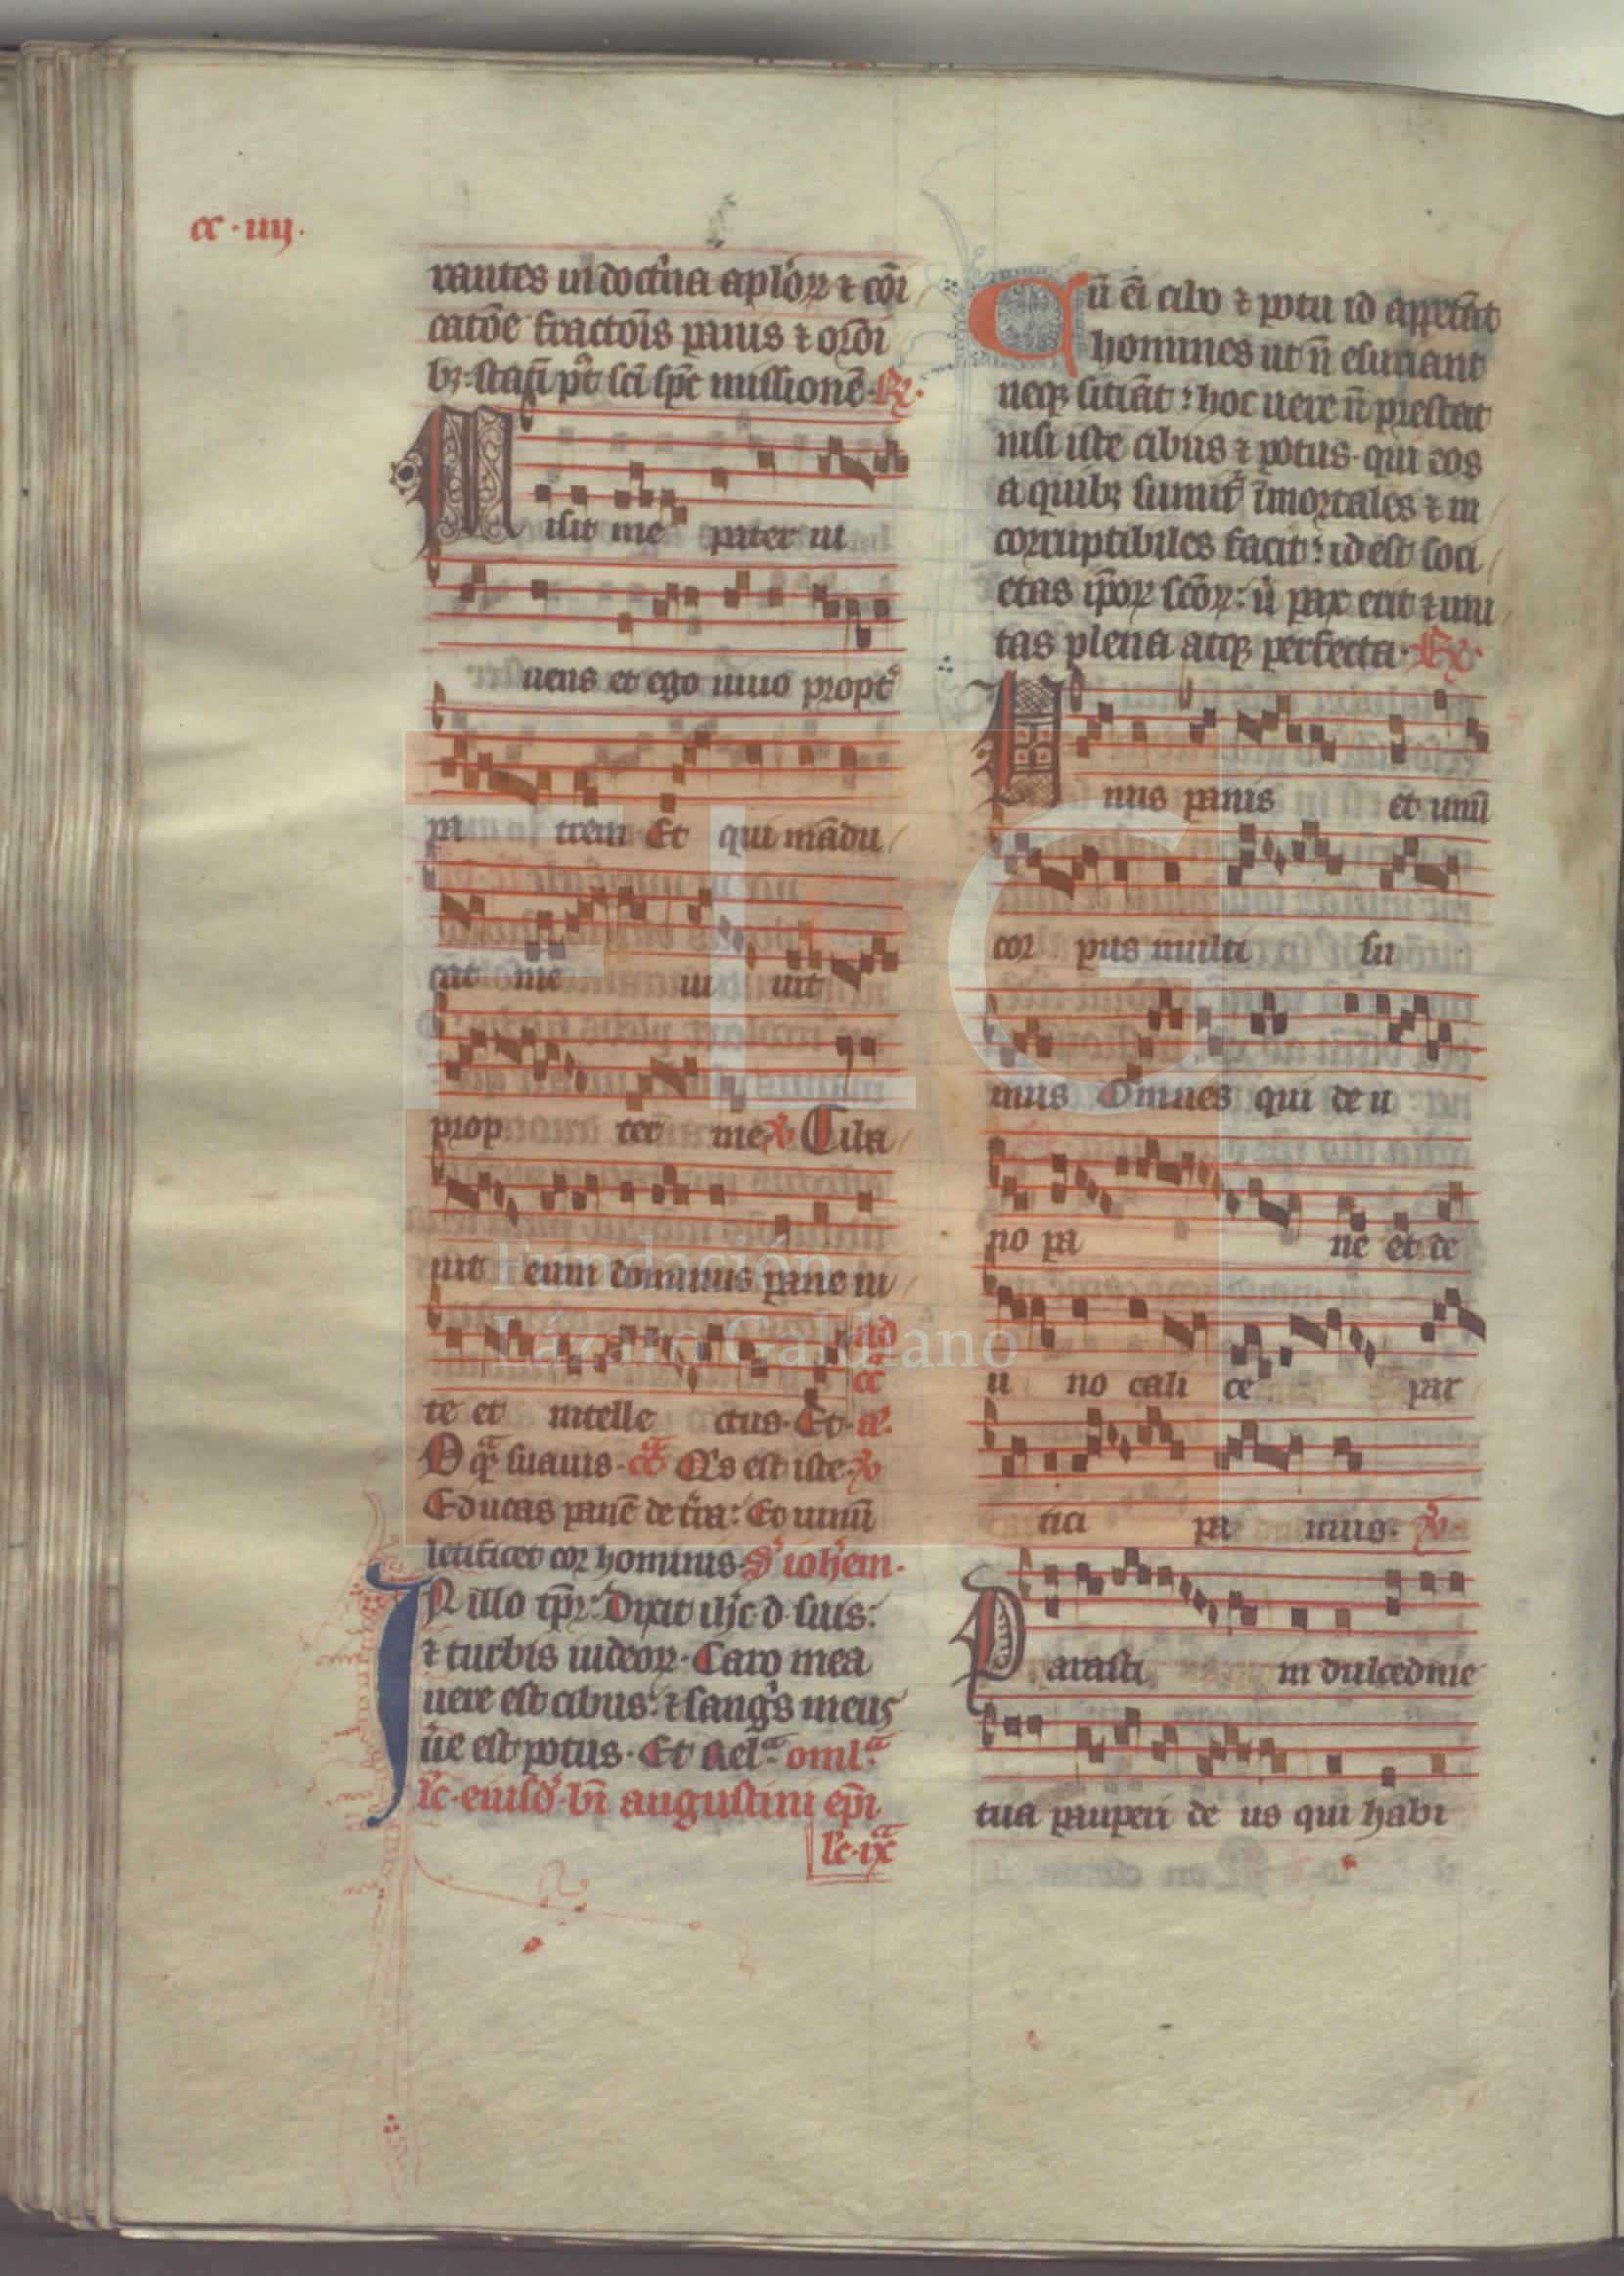 cc·iiij·
rantes in doct'na aplōꝝ ⁊ cōi
catōe fractōis panis ⁊ orōi
bꝫ· statī pꝰt sc̄i sp̄c missionē· ℟·
Misit me pater ui
uens et ego uiuo propt'
pa trem Et qui mādu
cat me ui uit
prop ter me ℣ Ciba
uit eum dominus pane ui
te et intelle ctus· Et· aͬ·
O qᷓ suauis· Q's est iste ℣
Educas panē de t'ra: Et uinū
letificet cor hominis· S' ioh'em·
IN illo tp̄r: Dixit ih̄c d· suis:
⁊ turbis iudeoꝝ· Caro mea
uere est cibus: ⁊ sang's meus
ūe est potus· Et relᷓ· omlᷓ·
lc̄· eiusd'· bī augustini ep̄i
lc̄·ixᷓ
Cū ei cibo ⁊ potu id appetāt
homines ut n̄ esuriant
neqꝫ sitiāt: hoc uere n̄ prestat
nisi iste cibus ⁊ potus· qui eos
a quibꝫ sumit' īmortales ⁊ in
corruptibiles facit: id est soci
etas ip̄oꝝ scōꝝ: ū pax erit ⁊ uni
tas plena atqꝫ perfecta· ℟·
Unus panis et unū
cor pus multi su
mus Omnes qui de u
no pa ne et de
u no cali ce par
tici pa mus· ℣·
Parasti in dulcedine
tua pauperi de us qui habi
FLG
Fundación
Lázaro Galdiano